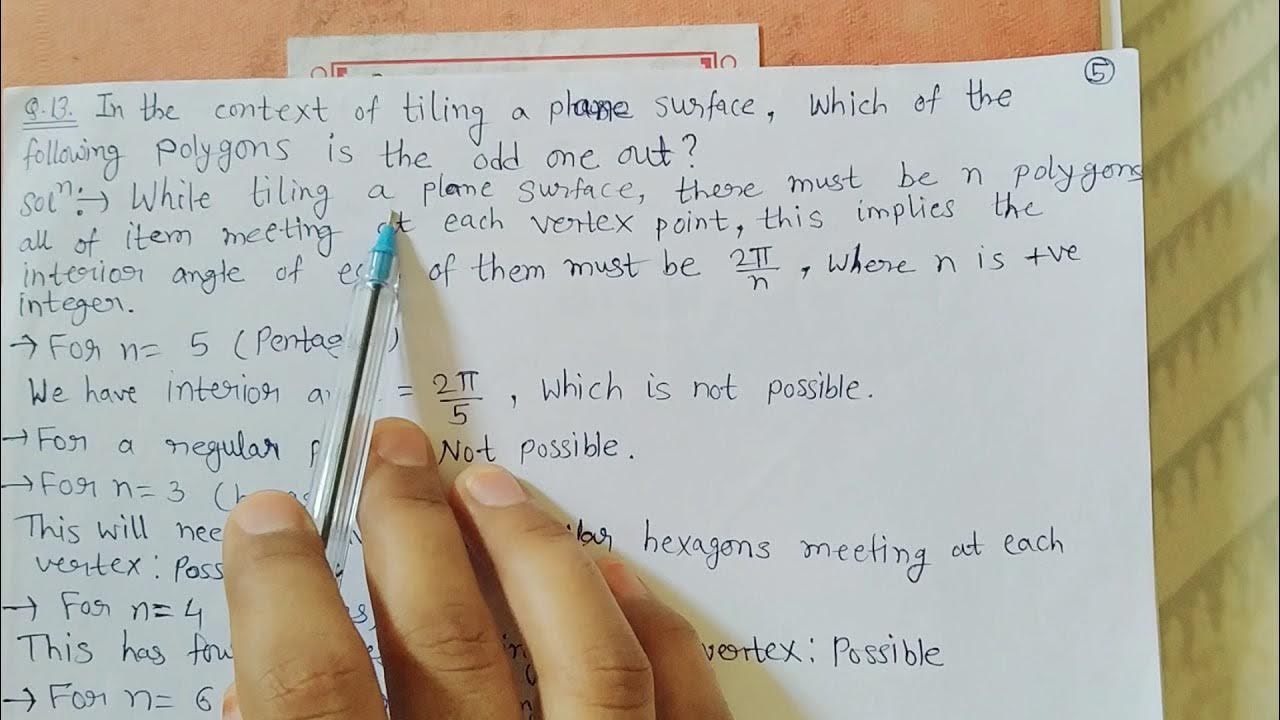 5
Q.13. In the context of tiling a plane surface, which of the
following polygons is the odd one out?
Solⁿ:→ While tiling a plane surface, there must be n polygons
all of item meeting at each vertex point, this implies the
interior angle of of them must be 2π/n, where n is +ve
integer.
→ For n= 5 (
We have interior = 2π/5, which is not possible.
→ For a regular Not possible.
→ For n= 3 (
This will hexagons meeting at each
vertex:
→ For n= 4
This has vertex: Possible
→ For n= 6